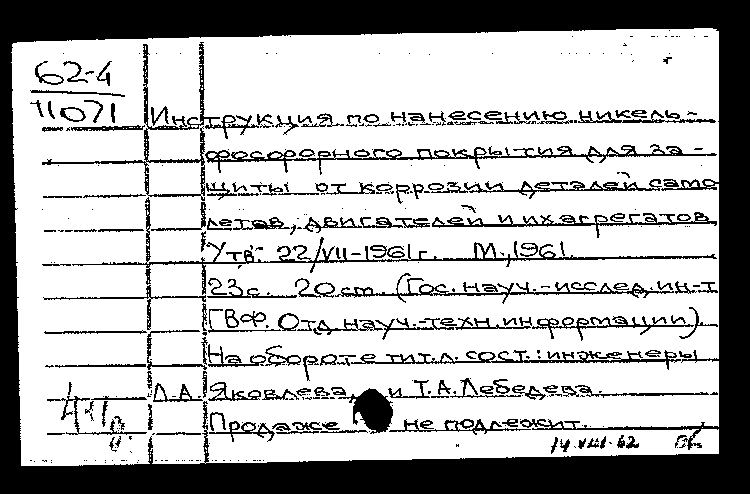 62-4
11071
Инструкция по нанесению никель-
фосфорного покрытия для за-
щиты от коррозии деталей само
летов, двигателей и их агрегатов.
Утв. 22/VII-1961г. М., 1961.
23с. 20cm. (Гос. науч.-исслед. ин-т
ГВФ. Отд. науч.-техн. информации).
На обороте тит. л. сост.: инженеры
Л.А. Яковлева и Т.А. Лебедева.
Продаже не подлежит.
14 VIII-62